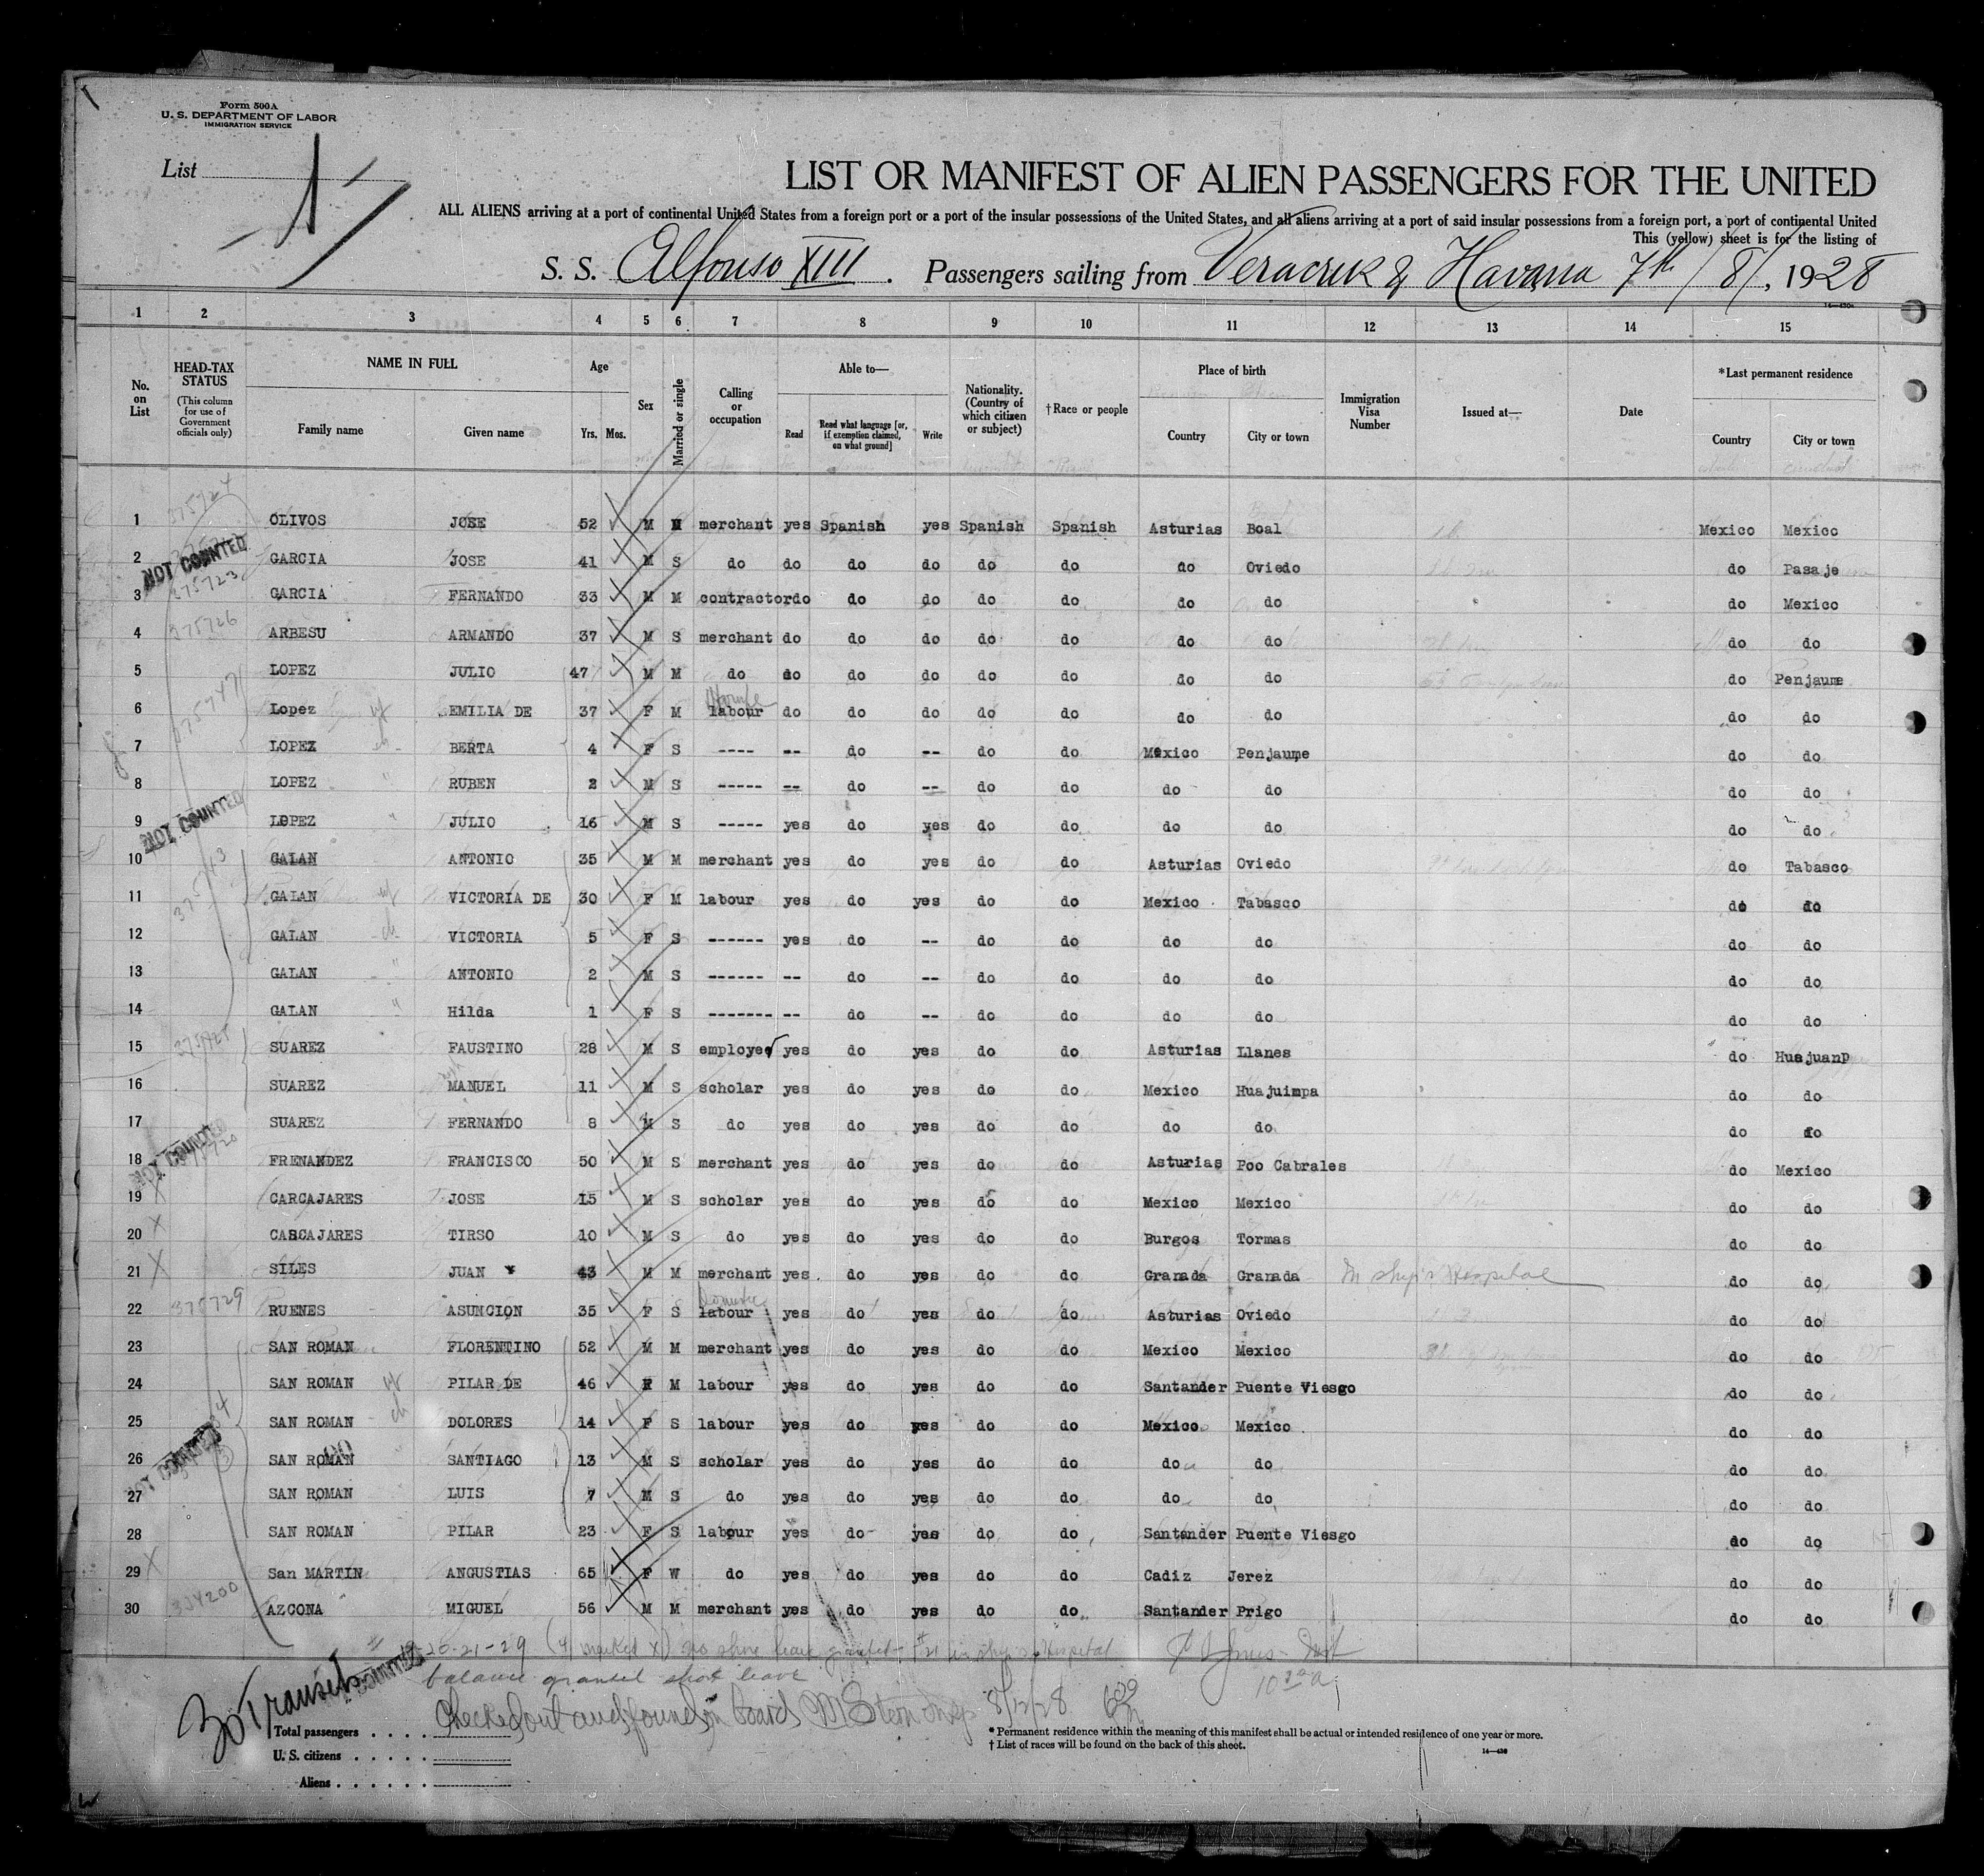 Form 500A
U. S. DEPARTMENT OF LABOR
IMMIGRATION SERVICE
List
LIST OR MANIFEST OF ALIEN PASSENGERS FOR THE UNITED
ALL ALIENS arriving at a port of continental United States from a foreign port or a port of the insular possessions of the United States, and all aliens arriving at a port of said insular possessions from a foreign port, a port of continental United
This (yellow) sheet is for the listing of
S. S. Alfonso XIII. Passengers sailing from Veracruz & Havana 7th/8/, 1928
1 2 3 4 5 6 7 8 9 10 11 12 13 14 15
No. on List
HEAD-TAX STATUS
(This column for use of Government officials only)
NAME IN FULL
Family name Given name
Age
Yrs. Mos.
Sex
Married or single
Calling or occupation
Able to—
Read Read what language [or, if exemption claimed, on what ground] Write
Nationality. (Country of which citizen or subject)
†Race or people
Place of birth
Country City or town
Immigration Visa Number
Issued at—
Date
*Last permanent residence
Country City or town
1 OLIVOS JOSE 52 M M merchant yes Spanish yes Spanish Spanish Asturias Boal Mexico Mexico
2 GARCIA JOSE 41 M S do do do do do do do Oviedo do Pasaje
3 GARCIA FERNANDO 33 M M contractor do do do do do do do do Mexico
4 ARBESU ARMANDO 37 M S merchant do do do do do do do do do
5 LOPEZ JULIO 47 M M do do do do do do do do do Penjaume
6 Lopez EMILIA DE 37 F M labour do do do do do do do do do
7 LOPEZ BERTA 4 F S ---- -- do -- do do Mexico Penjaume do do
8 LOPEZ RUBEN 2 M S ----- -- do -- do do do do do do
9 LOPEZ JULIO 16 M S ----- yes do yes do do do do do do
10 GALAN ANTONIO 35 M M merchant yes do yes do do Asturias Oviedo do Tabasco
11 GALAN VICTORIA DE 30 F M labour yes do yes do do Mexico Tabasco do do
12 GALAN VICTORIA 5 F S ------ yes do -- do do do do do do
13 GALAN ANTONIO 2 M S ------ -- do -- do do do do do do
14 GALAN Hilda 1 F S ------- -- do -- do do do do do do
15 SUAREZ FAUSTINO 28 M S employee yes do yes do do Asturias Llanes do HuajuanP
16 SUAREZ MANUEL 11 M S scholar yes do yes do do Mexico Huajuimpa do do
17 SUAREZ FERNANDO 8 M S do yes do yes do do do do do do
18 FRENANDEZ FRANCISCO 50 M S merchant yes do yes do do Asturias Poo Cabrales do Mexico
19 CARCAJARES JOSE 15 M S scholar yes do yes do do Mexico Mexico do do
20 CARCAJARES TIRSO 10 M S do yes do yes do do Burgos Tormas do do
21 SILES JUAN 43 M M merchant yes do yes do do Granada Granada In ship's Hospital do do
22 375729 RUENES ASUNCION 35 F S labour yes do yes do do Asturias Oviedo do do
23 SAN ROMAN FLORENTINO 52 M M merchant yes do yes do do Mexico Mexico do do
24 SAN ROMAN PILAR DE 46 F M labour yes do yes do do Santander Puente Viesgo do do
25 SAN ROMAN DOLORES 14 F S labour yes do yes do do Mexico Mexico do do
26 SAN ROMAN SANTIAGO 13 M S scholar yes do yes do do do do do do
27 SAN ROMAN LUIS 7 M S do yes do yes do do do do do do
28 SAN ROMAN PILAR 23 F S labour yes do yes do do Santander Puente Viesgo do do
29 San MARTIN ANGUSTIAS 65 F W do yes do yes do do Cadiz Jerez do do
30 AZCONA MIGUEL 56 M M merchant yes do yes do do Santander Prigo do do
NOT COUNTED
NOT COUNTED
NOT COUNTED
NOT COUNTED
20-21-29 (4 marked X) no shore leave granted- #21 in ship's Hospital
balance granted shore leave
30 Transits
Checked out and found on board 8/12/28
Total passengers
U. S. citizens
Aliens
* Permanent residence within the meaning of this manifest shall be actual or intended residence of one year or more.
† List of races will be found on the back of this sheet.